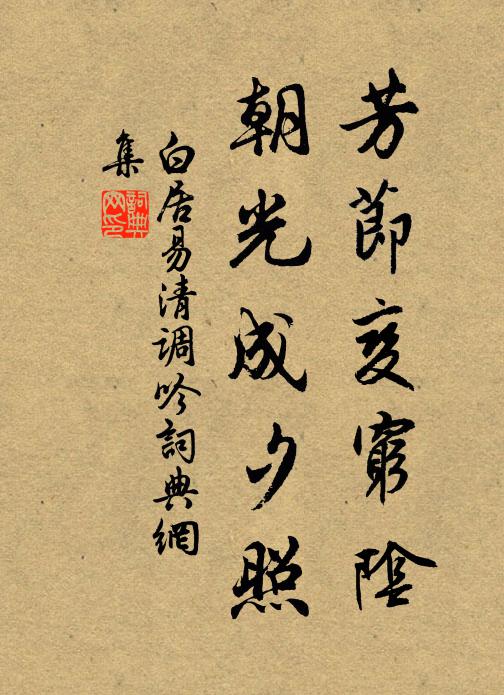 芳節変窮陰
朝光成夕照
白居易清調吟詞典網
集
詞典網印